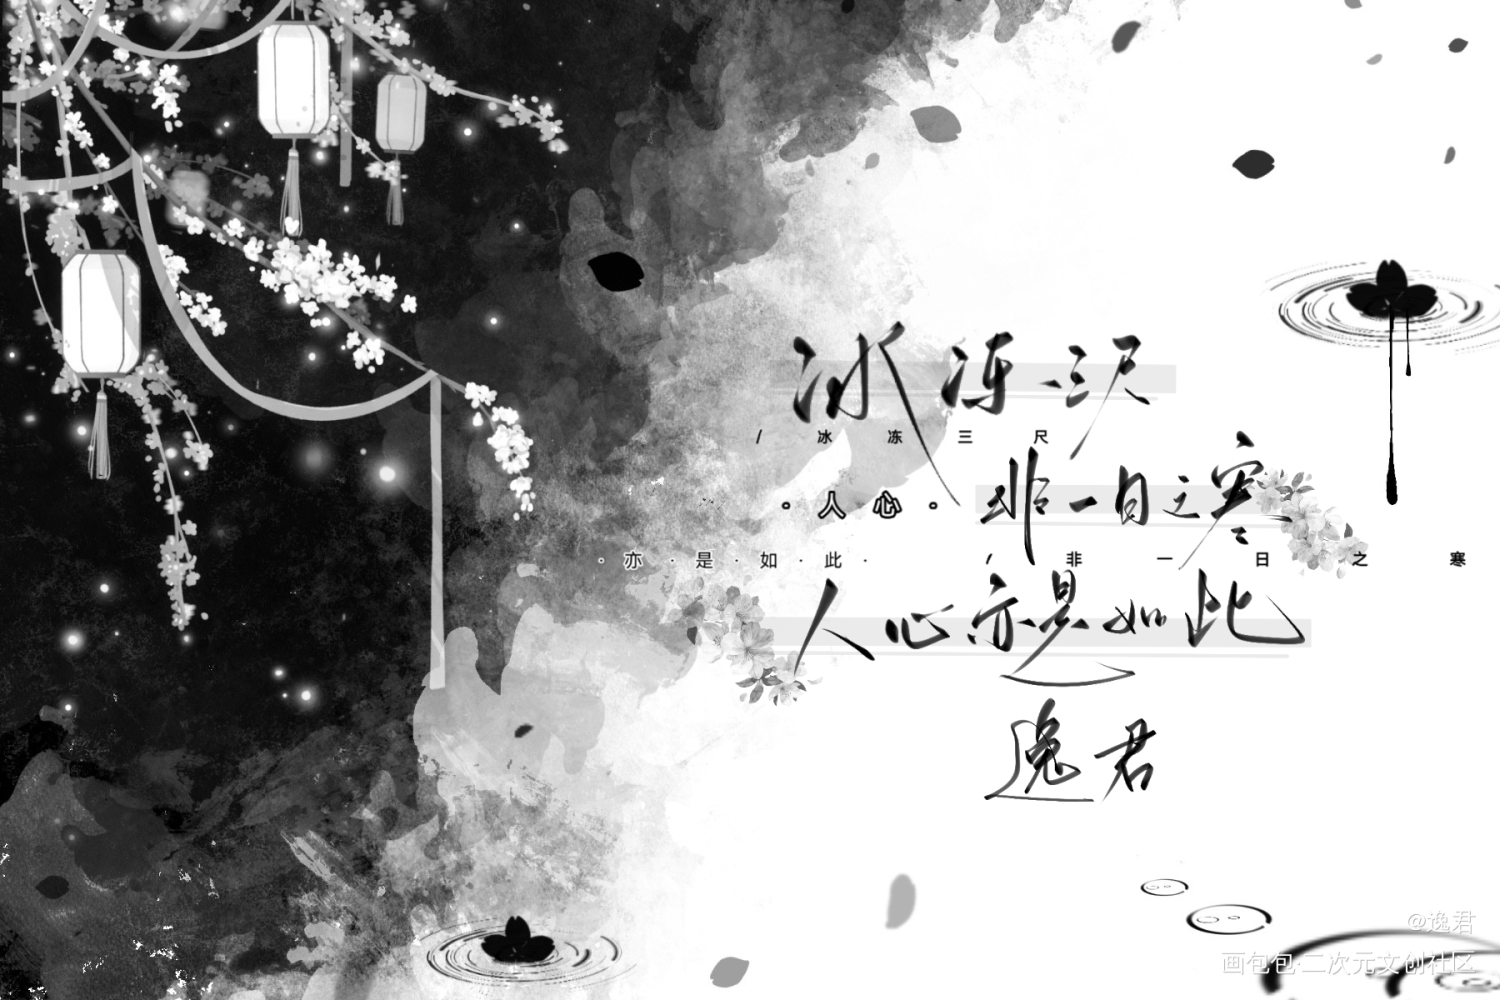 冰冻三尺
/ 冰 冻 三 尺
非一日之寒
·人心·
·亦·是·如·此·
/ 非 一 日 之 寒
人心亦是如此
逸君
@逸君
画包包·二次元文创社区